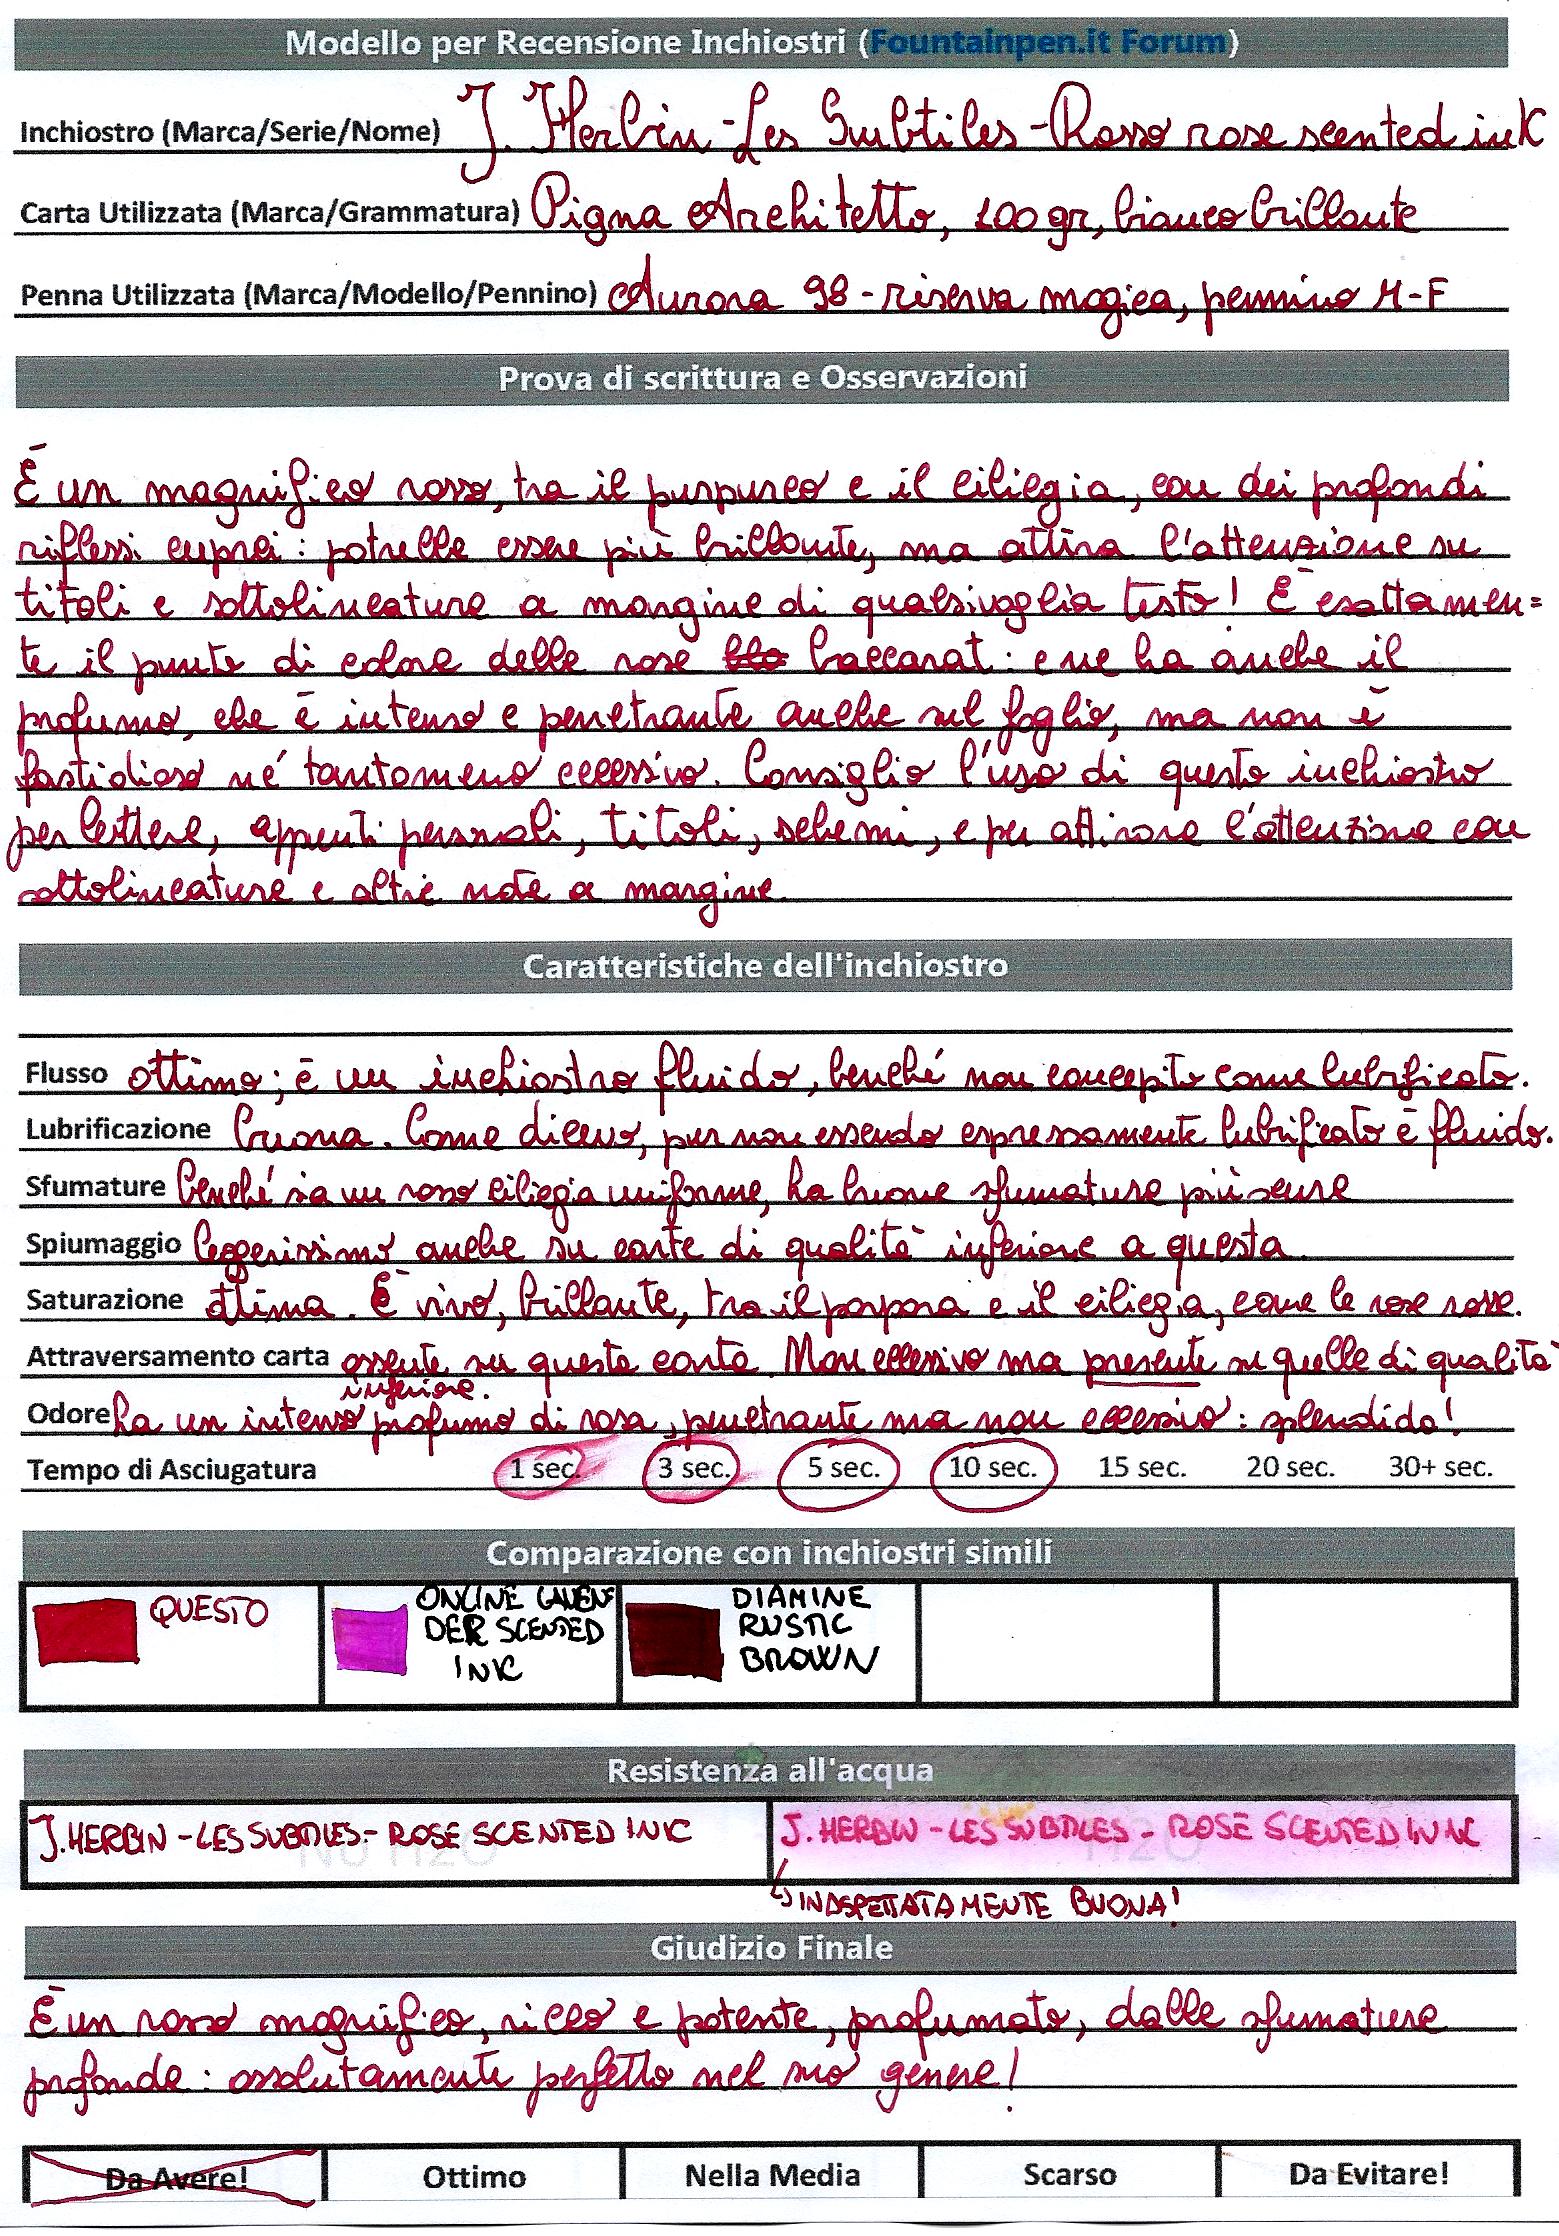 Modello per Recensione Inchiostri (Fountainpen.it Forum)
Inchiostro (Marca/Serie/Nome) J. Herbin - Les Subtiles - Rosso rose scented ink
Carta Utilizzata (Marca/Grammatura) Pigna Architetto, 100 gr, bianco brillante
Penna Utilizzata (Marca/Modello/Pennino) Aurora 98 - riserva magica, pennino M-F
Prova di scrittura e Osservazioni
È un magnifico rosso, tra il purpureo e il ciliegia, con dei profondi
riflessi cuprei: potrebbe essere più brillante, ma attira l'attenzione su
titoli e sottolineature a margine di qualsivoglia testo! È esattamen=
te il punto di colore delle rose baccarat: e ne ha anche il
profumo, che è intenso e penetrante anche sul foglio, ma non è
fastidioso né tantomeno eccessivo. Consiglio l'uso di questo inchiostro
per lettere, appunti personali, titoli, schemi, e per attirare l'attenzione con
sottolineature e altre note a margine.
Caratteristiche dell'inchiostro
Flusso ottimo; è un inchiostro fluido, benché non concepito come lubrificato.
Lubrificazione buona. Come dicevo, pur non essendo espressamente lubrificato è fluido.
Sfumature benché sia un rosso ciliegia uniforme, ha buone sfumature più scure
Spiumaggio leggerissimo anche su carte di qualità inferiore a questa.
Saturazione ottima. È vivo, brillante, tra il porpora e il ciliegia, come le rose rosse.
Attraversamento carta assente su questa carta. Non eccessivo ma presente su quelle di qualità
inferiore.
Odore ha un intenso profumo di rosa, penetrante ma non eccessivo: splendido!
Tempo di Asciugatura 1 sec. 3 sec. 5 sec. 10 sec. 15 sec. 20 sec. 30+ sec.
Comparazione con inchiostri simili
QUESTO
ONLINE LAVEN
DER SCENTED
INK
DIAMINE
RUSTIC
BROWN
Resistenza all'acqua
J. HERBIN - LES SUBTILES - ROSE SCENTED INK
No H2O
J. HERBIN - LES SUBTILES - ROSE SCENTED INK
H2O
↳ INASPETTATAMENTE BUONA!
Giudizio Finale
È un rosso magnifico, ricco e potente, profumato, dalle sfumature
profonde: assolutamente perfetto nel suo genere!
Da Avere! Ottimo Nella Media Scarso Da Evitare!